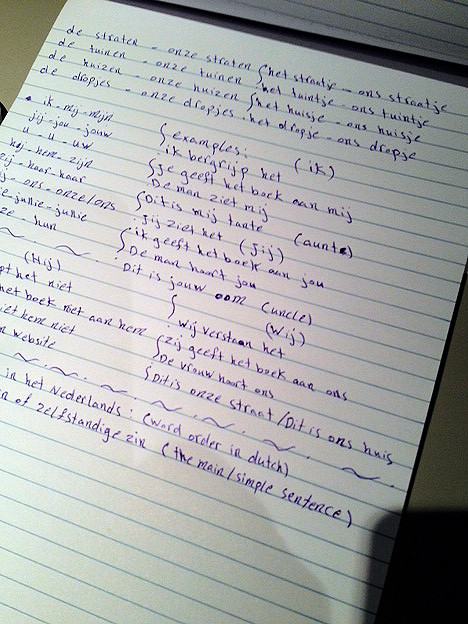 de straten - onze straten { het straatje - ons straatje
de tuinen - onze tuinen { het tuintje - ons tuintje
de huizen - onze huizen { het huisje - ons huisje
de dropjes - onze dropjes . het dropje - ons dropje
ik - mij - mijn
jij - jou - jouw { examples:
u - u - uw ik bergrijp het (ik)
hem - zijn { Je geeft het boek aan mij
zij - haar - haar De man ziet mij
ons - onze/ons { Dit is mij tante (aunt)
jullie - jullie Jij ziet het (Jij)
hun { ik geeft het boek aan jou
De man hoort jou
(Hij) Dit is jouw oom (uncle)
het niet { (Wij)
het boek niet aan hem Wij verstaan het
hem niet { Zij geeft het boek aan ons
website De vrouw hoort ons
{ Dit is onze straat / Dit is ons huis
in het Nederlands: (word order in dutch)
of zelfstandige zin (the main/simple sentence)